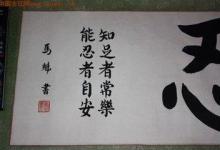 忍
知足者常樂
能忍者自安
馬魁書